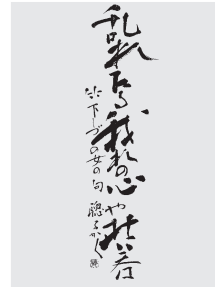 乱れたる我れの心や杜若
竹下しづの女の句